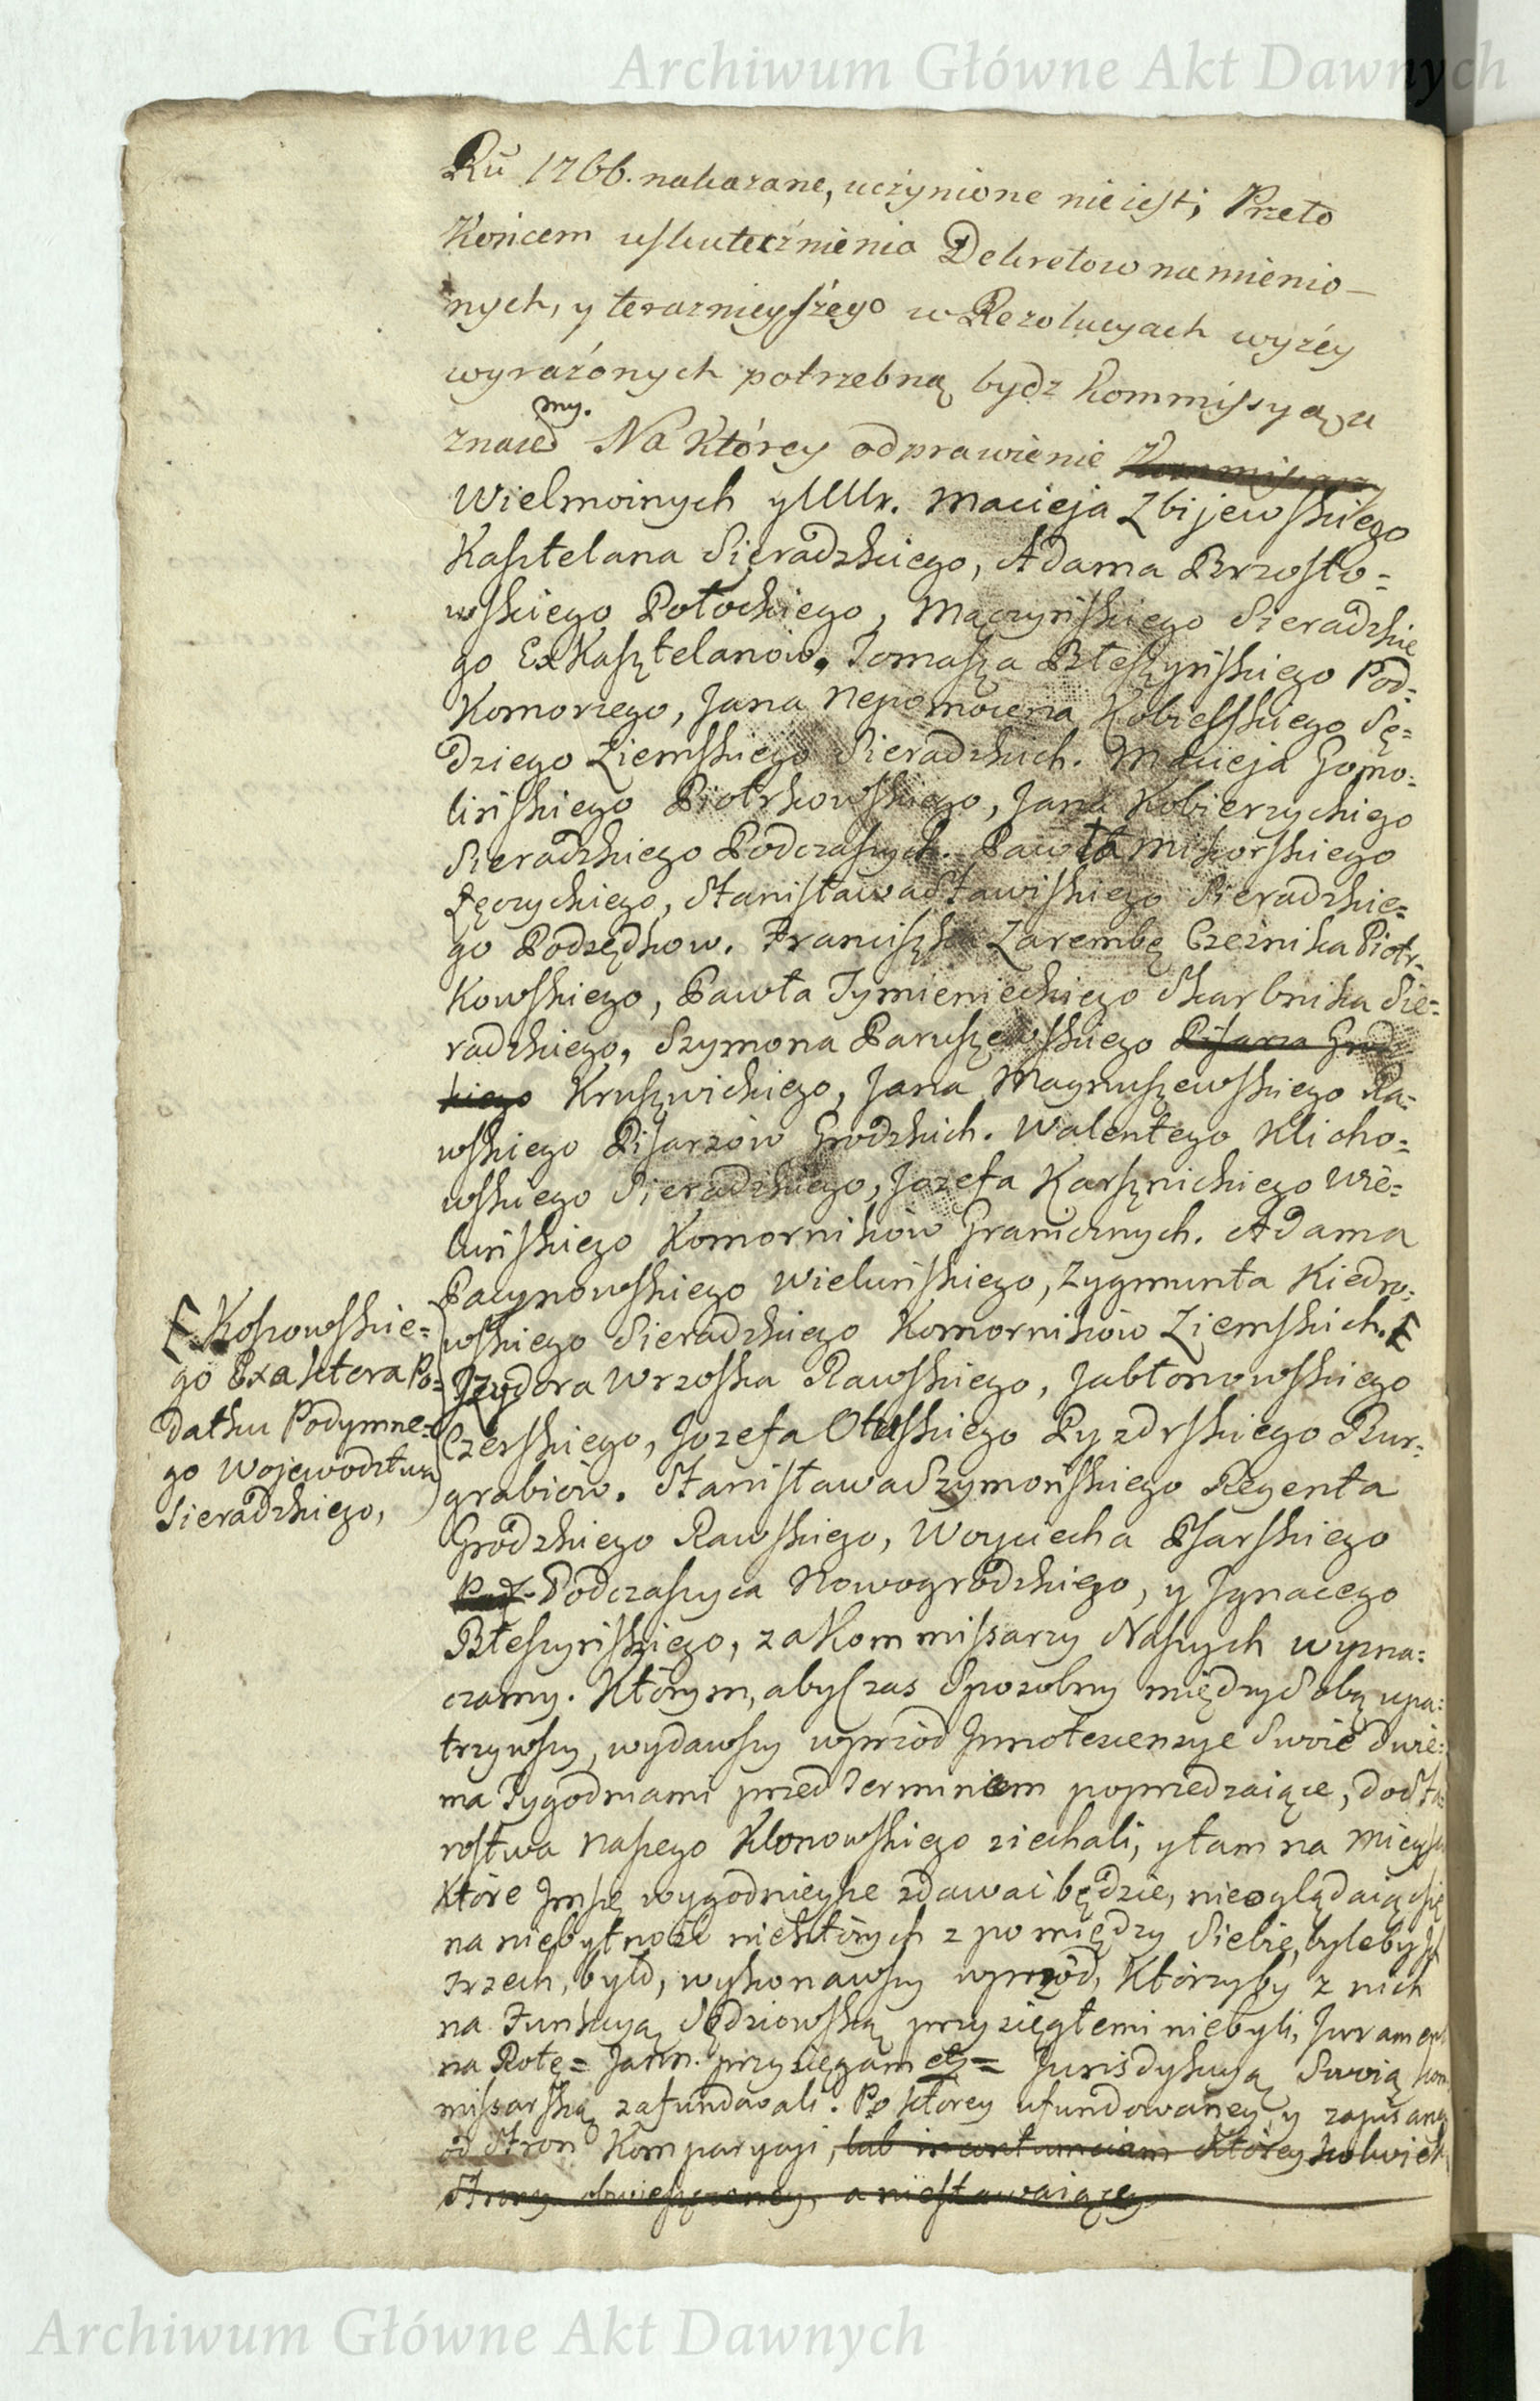 Archiwum Główne Akt Dawnych
Ru 1766. nakazane, uczynione nie iest; Przeto
Końcem uskutecznienia Dekretow namienio-
nych, y teraznieyszego w Rezolucyach wyżey
wyrażonych potrzebną bydz Kommissyą u
my.
znaie Na Którey odprawienie Kommissarzy
Wielmoznych y UUr. Macieja Zbijewskiego
Kasztelana Sieradzkiego, Adama Brzosto=
wskiego Połockiego, Mączyńskiego Sieradzkie
go ExKasztelanów. Tomasza Błeszyńskiego Pod=
Komorzego, Jana Nepomucena Kobielskiego Sę=
dziego Ziemskiego Sieradzkich. Macieja Gomo=
lińskiego Piotrkowskiego, Jana Kobierzyckiego
Sieradzkiego Podczaszych. Pawła Mikorskiego
Łęczyckiego, Stanisława Stawiskiego Sieradzkie=
go Podsędkow. Franciszka Zarembę Cześnika Piotr=
Kowskiego, Pawła Tymienieckiego Skarbnika Sie=
radzkiego, Szymona Paruszewskiego Pisarza Grodz
kiego Kruszwickiego, Jana Magnuszewskiego Ra=
wskiego Pisarzów Grodzkich. Walentego Klicho=
wskiego Sieradzkiego, Jozefa Karsznickiego Wie=
luńskiego Komorników Granicznych. Adama
Pacynowskiego Wieluńskiego, Zygmunta Kiedro=
wskiego Sieradzkiego Komorników Ziemskich.
Kossowskie=
go Exaktora Po=
datku Podymne=
go Województwa
Sieradzkiego,
Izydora Wrzoska Rawskiego, Jabłonowskiego
Czerskiego, Jozefa Otuskiego Pyzdrskiego Bur=
grabiów. Stanisława Szymońskiego Regenta
Grodzkiego Rawskiego, Woyciecha Psarskiego
Podczaszyca Nowogrodzkiego, y Ignacego
Błeszyńskiego, za Kommissarzy Naszych wyzna=
czamy. Którym, aby Czas Sposobny między Sobą upa=
trzywszy, wydawszy wprzód Innotescencye Swoie dwie=
ma Tygodniami przed Terminem poprzedzaiące, do Sta=
rostwa Naszego Klonowskiego ziechali, y tam na Mieyscu
Które Im się wygodnieysze zdawać będzie, nieoglądaiąc się
na niebytność niektórych z pomiędzy Siebie, byleby Ich
trzech, było, wykonawszy wprzód, Którzyby z nich
na Funkcyą Sędziowską przysięgłemi niebyli, Jurament
na Rotę = Ja nn. przysięgam etc = Jurisdykcyą Swoią Kom
missarską zafundowali. Po którey ufundowaney, y zapisaney
od Stron Komparycyi, lub in contumaciam Którey kolwiek
Strony obwieszczoney, a niestawaiącey
Archiwum Główne Akt Dawnych